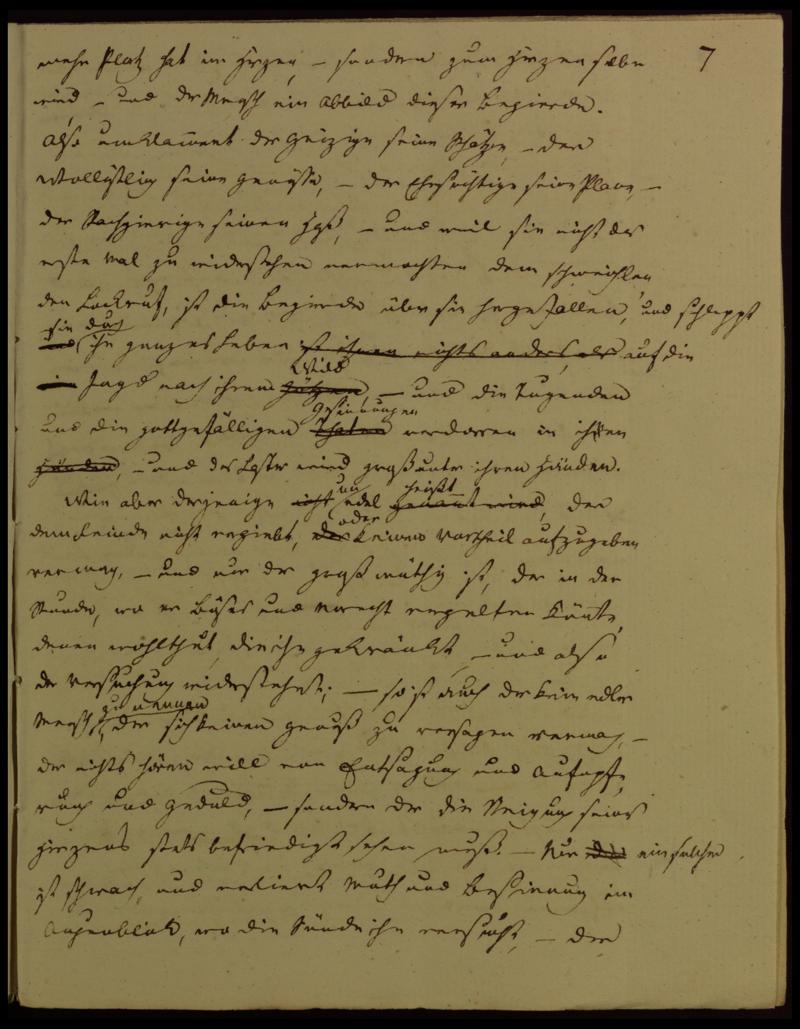 7
mehr Platz hat im Herzen, – sondern zum Herzen selber
wird – und der Mensch ein Abbild dieser Begierde.
Also umklam̄ert der Geizige seine Schätze, – der
Wollüstling seine Genüsse, – der Ehrsüchtige seine Plane, –
der Rachgierige seinen Haß, – und weil sie nicht das
erste Mal zu widerstehen vermochten dem schmeicheln
den Lockruf, ist die Begierde über sie hergefallen, und schleppt
sie durch
ihr ganzes Leben ist ihnen nichts anders, als auf die
Wild
Jagd nach ihrem Götzen, – und die Tugenden
Gesinnungen
und die gottgefälligen Thaten verdorren in ihren
Händen, – und das Laster wird groß unter ihren Händen.
un heißt
Wie aber derjenige nicht edel genannt wird, der
oder
dem Feinde nicht vergiebt, der keinen Vortheil aufzugeben
vermag, – und nur der großmüthig ist, der in der
Stunde, wo er Böses und Unrecht vergelten könnte,
denen wohlthut, die ihn gekränkt, – und also
der Versuchung widerstehet; – so ist auch der kein edler
zu nennen
Mensch, der sich keinen Genuß zu versagen vermag, –
der nichts hören will von Entsagung und Aufopfe
rung und Geduld, – sondern der die Neigung seines
Herzens stets befriedigt sehen muß. – Nur der ein solcher
ist schwach, und verliert Muth und Besinnung im
Augenblick, wo die Sünde ihn versucht, – der